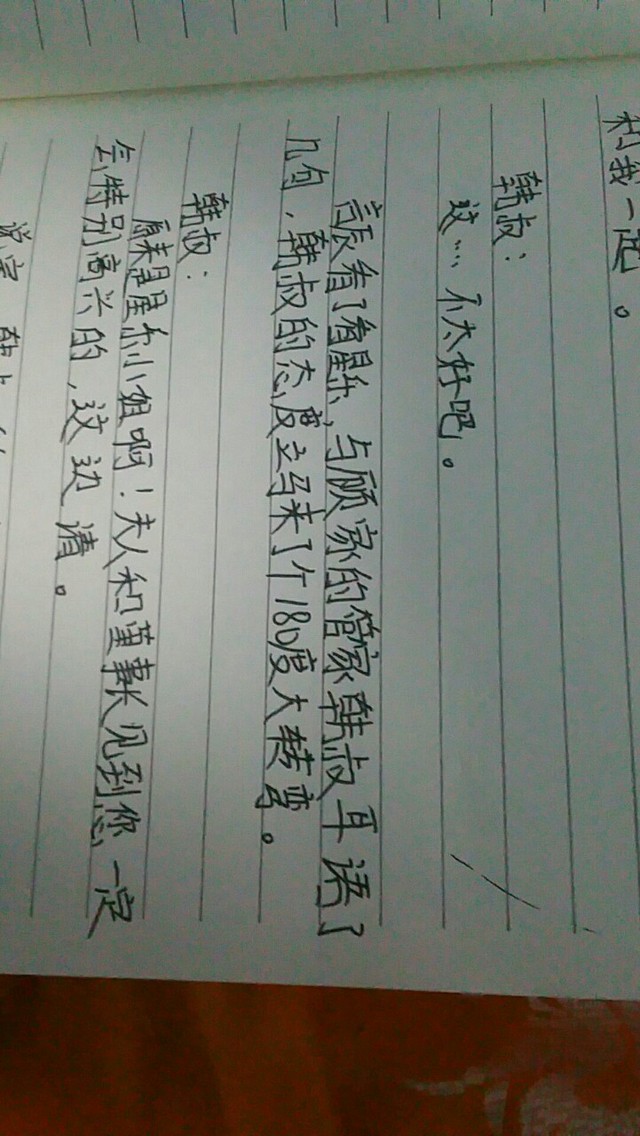 和我一起。
韩叔：
这…不太好吧。
高辰看了看星乐，与顾家的管家韩叔耳语了
几句，韩叔的态度立马来了个180度大转弯。
韩叔：
原来是星乐小姐啊！夫人和董事长见到您一定
会特别高兴的，这边请。
说完